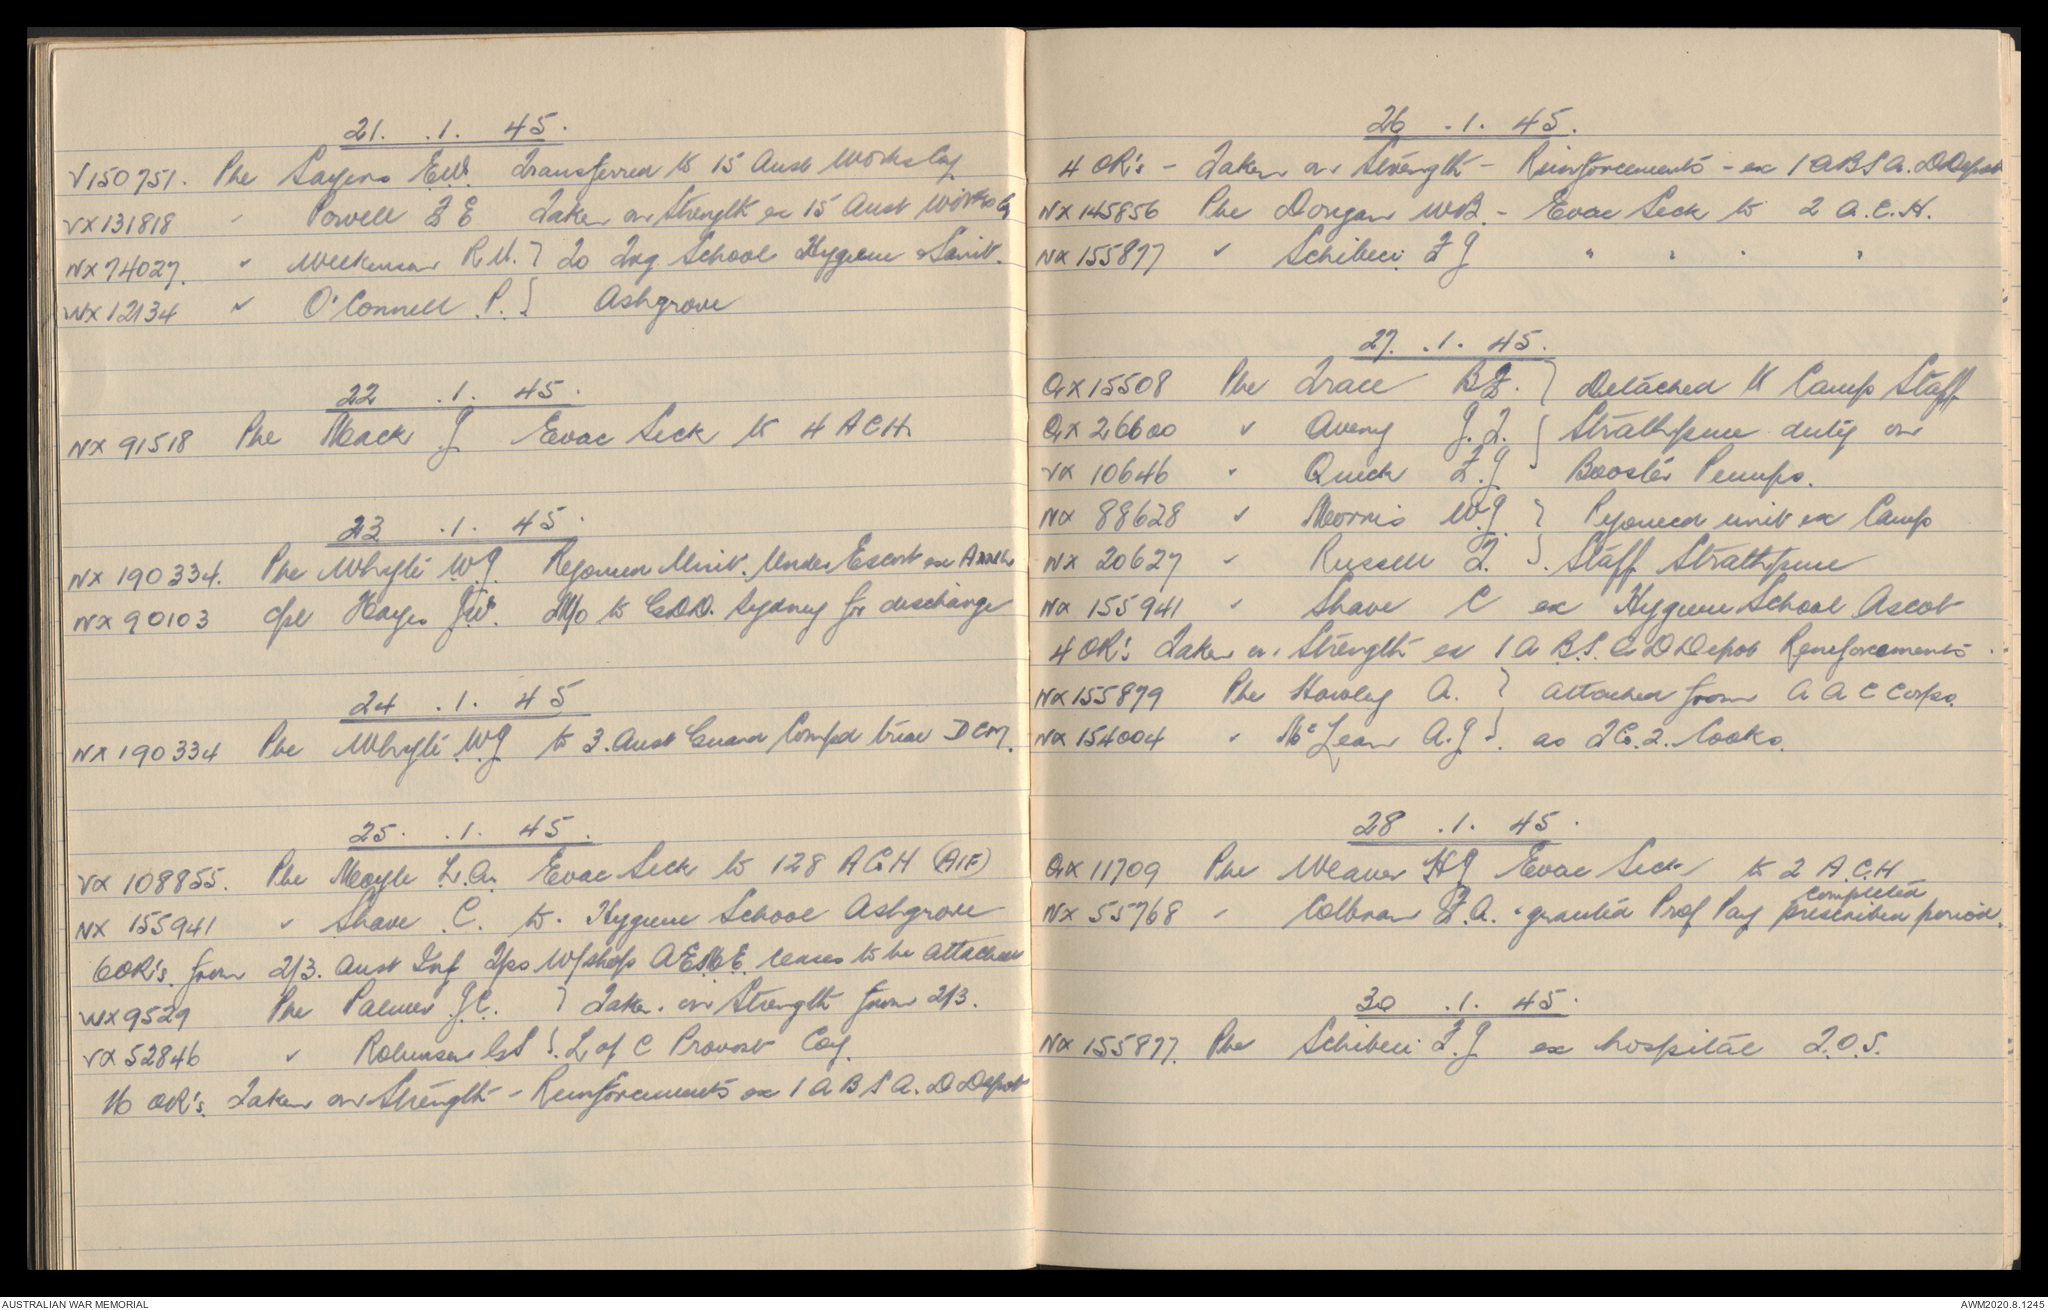 21. .1. 45.
V150751. Pte Sayers E.W. Transferred to 15 Aust Works Coy
VX131818 " Powell F E Taken on Strength ex 15 Aust Works Coy
NX74027. " Wilkinson R.M. } To Trg School Hygiene & Sanit.
WX12134 " O'Connell P. } Ashgrove
22 .1. 45.
NX91518 Pte Mack J Evac Sick to 4 ACH
23 .1. 45.
NX190334. Pte Whyte W.J. Rejoined Unit. Under Escort ex
NX90103 Cpl Hayes J.W. M/o to G.D.D. Sydney for discharge
24 .1. 45
NX190334 Pte Whyte W.J to 3. Aust Guard Comp'd trial DCM.
25. .1. 45.
VX108855. Pte Moyle L.A. Evac Sick to 128 AGH (AIF)
NX155941 " Shave C. to. Hygiene School Ashgrove
6 OR's. from 2/3. Aust Inf Tps W/shop AEME ceases to be attached
WX9529 Pte Palmer J.C. } Taken on Strength from 2/3.
VX52846 " Robinson G S }. L of C Provost Coy.
16 OR's. Taken on Strength - Reinforcements ex 1 A B S A. D Depot
26 .1. 45.
4 OR's - Taken on Strength - Reinforcements - ex 1 A B S A. D Depot
NX145856 Pte Dongan W.B. - Evac Sick to 2 A.C.H.
NX155877 " Schibeci F J " " " "
27. .1. 45.
QX15508 Pte Trace B.F. } Detached to Camp Staff
QX26600 " Avery J.T. } Strathpine duty on
VX10646 " Quick F.J } Booster Pumps.
NX88628 " Morris W.J } Rejoined unit ex Camp
NX20627 " Russell T. }. Staff Strathpine
NX155941 " Shave C ex Hygiene School Ascot
4 OR's Taken on Strength ex 1 A B.S. G D Depot Reinforcements
NX155879 Pte Hawley A. } attached from A A C Corps.
NX154004 " McLean A.J }. as T.G. 2. Cooks.
28 .1. 45.
QX11709 Pte Weaver H J Evac Sick to 2 A.C.H
completed
NX55768 " Colbran F.A. - granted Prof Pay prescribed period.
30 .1. 45.
NX155877. Pte Schibeci F.J ex hospital T.O.S.
AUSTRALIAN WAR MEMORIAL
AWM2020.8.1245